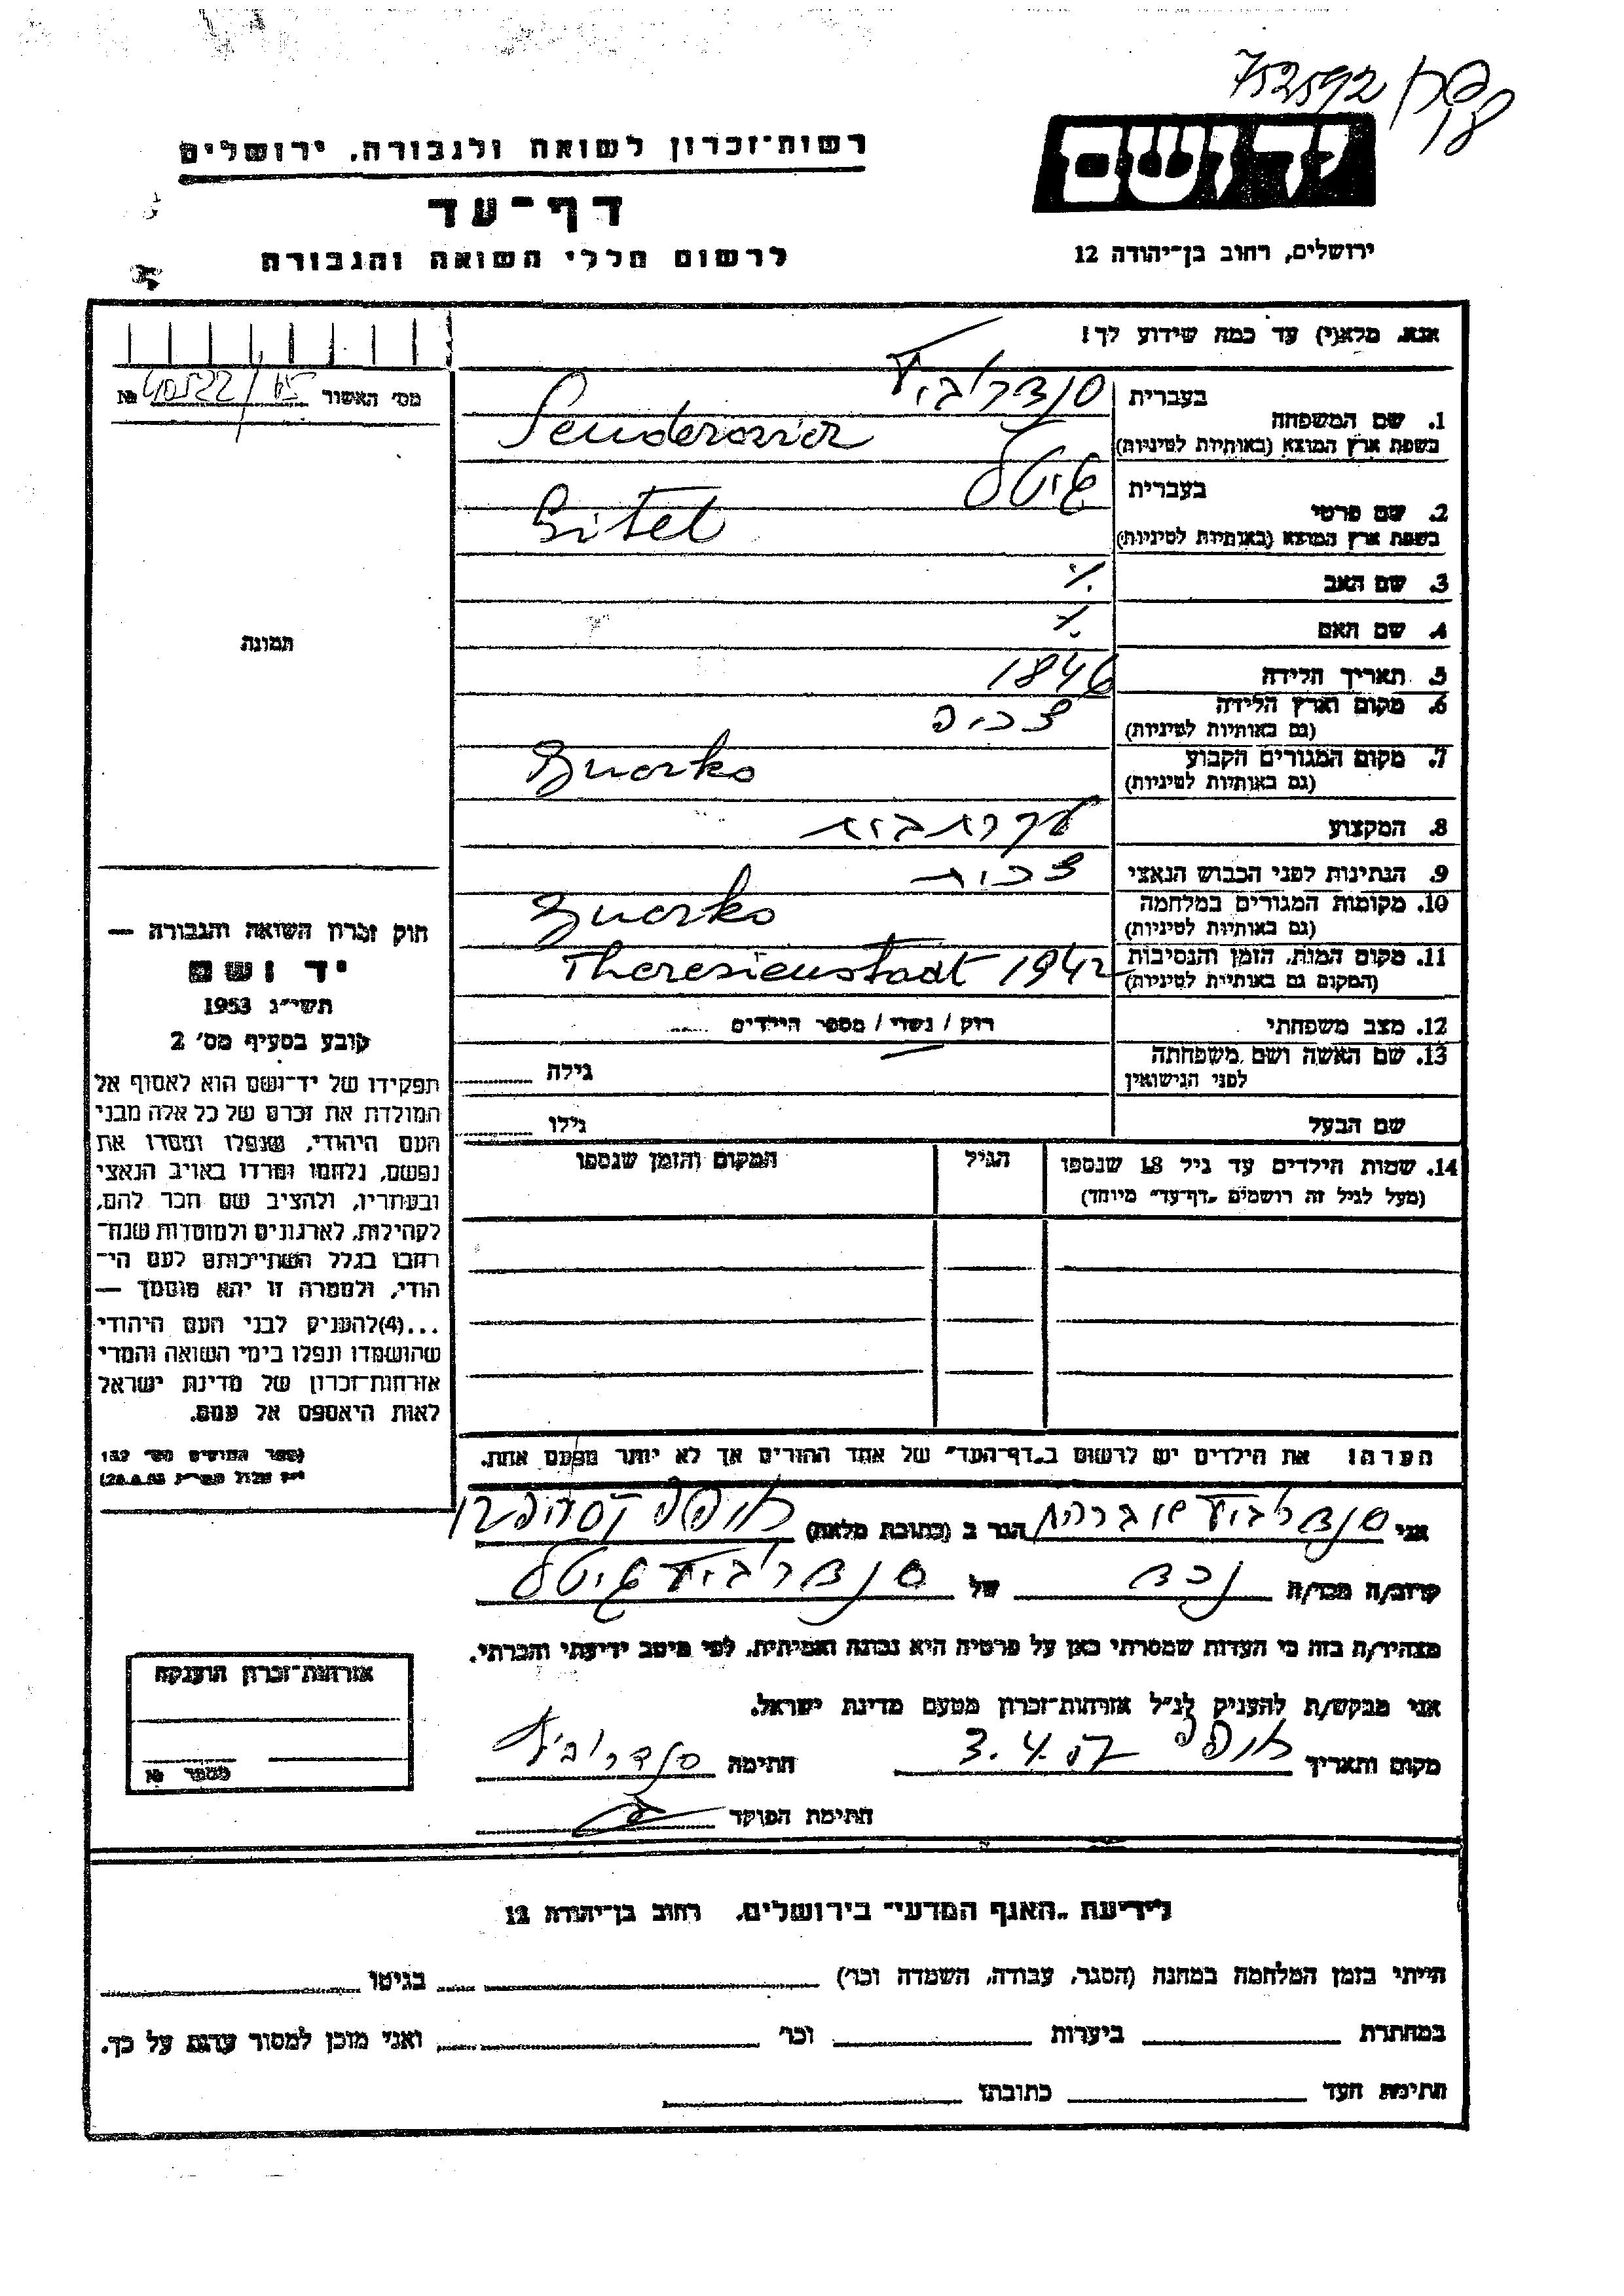 752592
רשות־זכרון לשואה ולגבורה, ירושלים
יד ושם
דף־עד
ירושלים, רחוב בן־יהודה 12
לרשום חללי השואה והגבורה
אנא, מלא(י) עד כמה שידוע לך!
מס׳ האשור 40522/65 №
תמונה
1. שם המשפחה
בעברית סנדרוביץ
בשפת ארץ המוצא (באותיות לטיניות) Senderovicz
2. שם פרטי
בעברית גיטל
בשפת ארץ המוצא (באותיות לטיניות) Gitel
3. שם האב ־/.
4. שם האם ־/.
5. תאריך הלידה 1846
6. מקום וארץ הלידה
(גם באותיות לטיניות) צ׳כיה
7. מקום המגורים הקבוע
(גם באותיות לטיניות)
8. המקצוע עקרת בית
9. הנתינות לפני הכבוש הנאצי צ׳כית
10. מקומות המגורים במלחמה
(גם באותיות לטיניות)
11. מקום המות, הזמן והנסיבות
(המקום גם באותיות לטיניות) Theresienstadt 1942
12. מצב משפחתי רוק / נשוי / מספר הילדים
13. שם האשה ושם משפחתה
לפני הנישואין גילה
שם הבעל גילו
14. שמות הילדים עד גיל 18 שנספו הגיל המקום והזמן שנספו
(מעל לגיל זה רושמים „דף־עד״ מיוחד)
חוק זכרון השואה והגבורה —
יד ושם
תשי״ג 1953
קובע בסעיף מס׳ 2
תפקידו של יד־ושם הוא לאסוף אל
המולדת את זכרם של כל אלה מבני
העם היהודי, שנפלו ומסרו את
נפשם, נלחמו ומרדו באויב הנאצי
ובעוזריו, ולהציב שם וזכר להם,
לקהילות, לארגונים ולמוסדות שנח־
רבו בגלל השתייכותם לעם הי־
הודי, ולמטרה זו יהא מוסמך —
...(4)להעניק לבני העם היהודי
שהושמדו ונפלו בימי השואה והמרי
אזרחות־זכרון של מדינת ישראל
לאות היאספם אל עמם.
(ספר החוקים מס׳ 132
הערה: את הילדים יש לרשום ב„דף־העד״ של אחד ההורים אך לא יותר מפעם אחת.
אני סנדרוביץ הגר ב (כתובת מלאה) חיפה
קרוב/ה מכר/ה נכד של סנדרוביץ גיטל
מצהיר/ה בזה כי העדות שמסרתי כאן על פרטיה היא נכונה ואמיתית, לפי מיטב ידיעתי והכרתי.
אני מבקש/ת להעניק לנ״ל אזרחות־זכרון מטעם מדינת ישראל.
מקום ותאריך חיפה 3.4.57 חתימה סנדרוביץ
חתימת הפוקד
אזרחות־זכרון הוענקה
מספר №
לידיעת „האגף המדעי״ בירושלים, רחוב בן־יהודה 12
הייתי בזמן המלחמה במחנה (הסגר, עבודה, השמדה וכר׳) בגיטו
במחתרת ביערות וכר׳ ואני מוכן למסור עדות על כך.
חתימת העד כתובתו